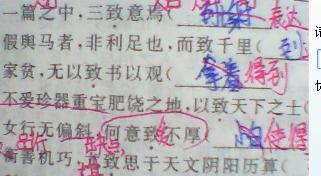 一篇之中,三致意焉( 表达
假舆马者,非利足也,而致千里(
家贫,无以致书以观( 拿着 得到
不爱珍器重宝肥饶之地,以致天下之士(
女行无偏斜,何意致不厚( 使得
衡善机巧,尤致思于天文阴阳历算(